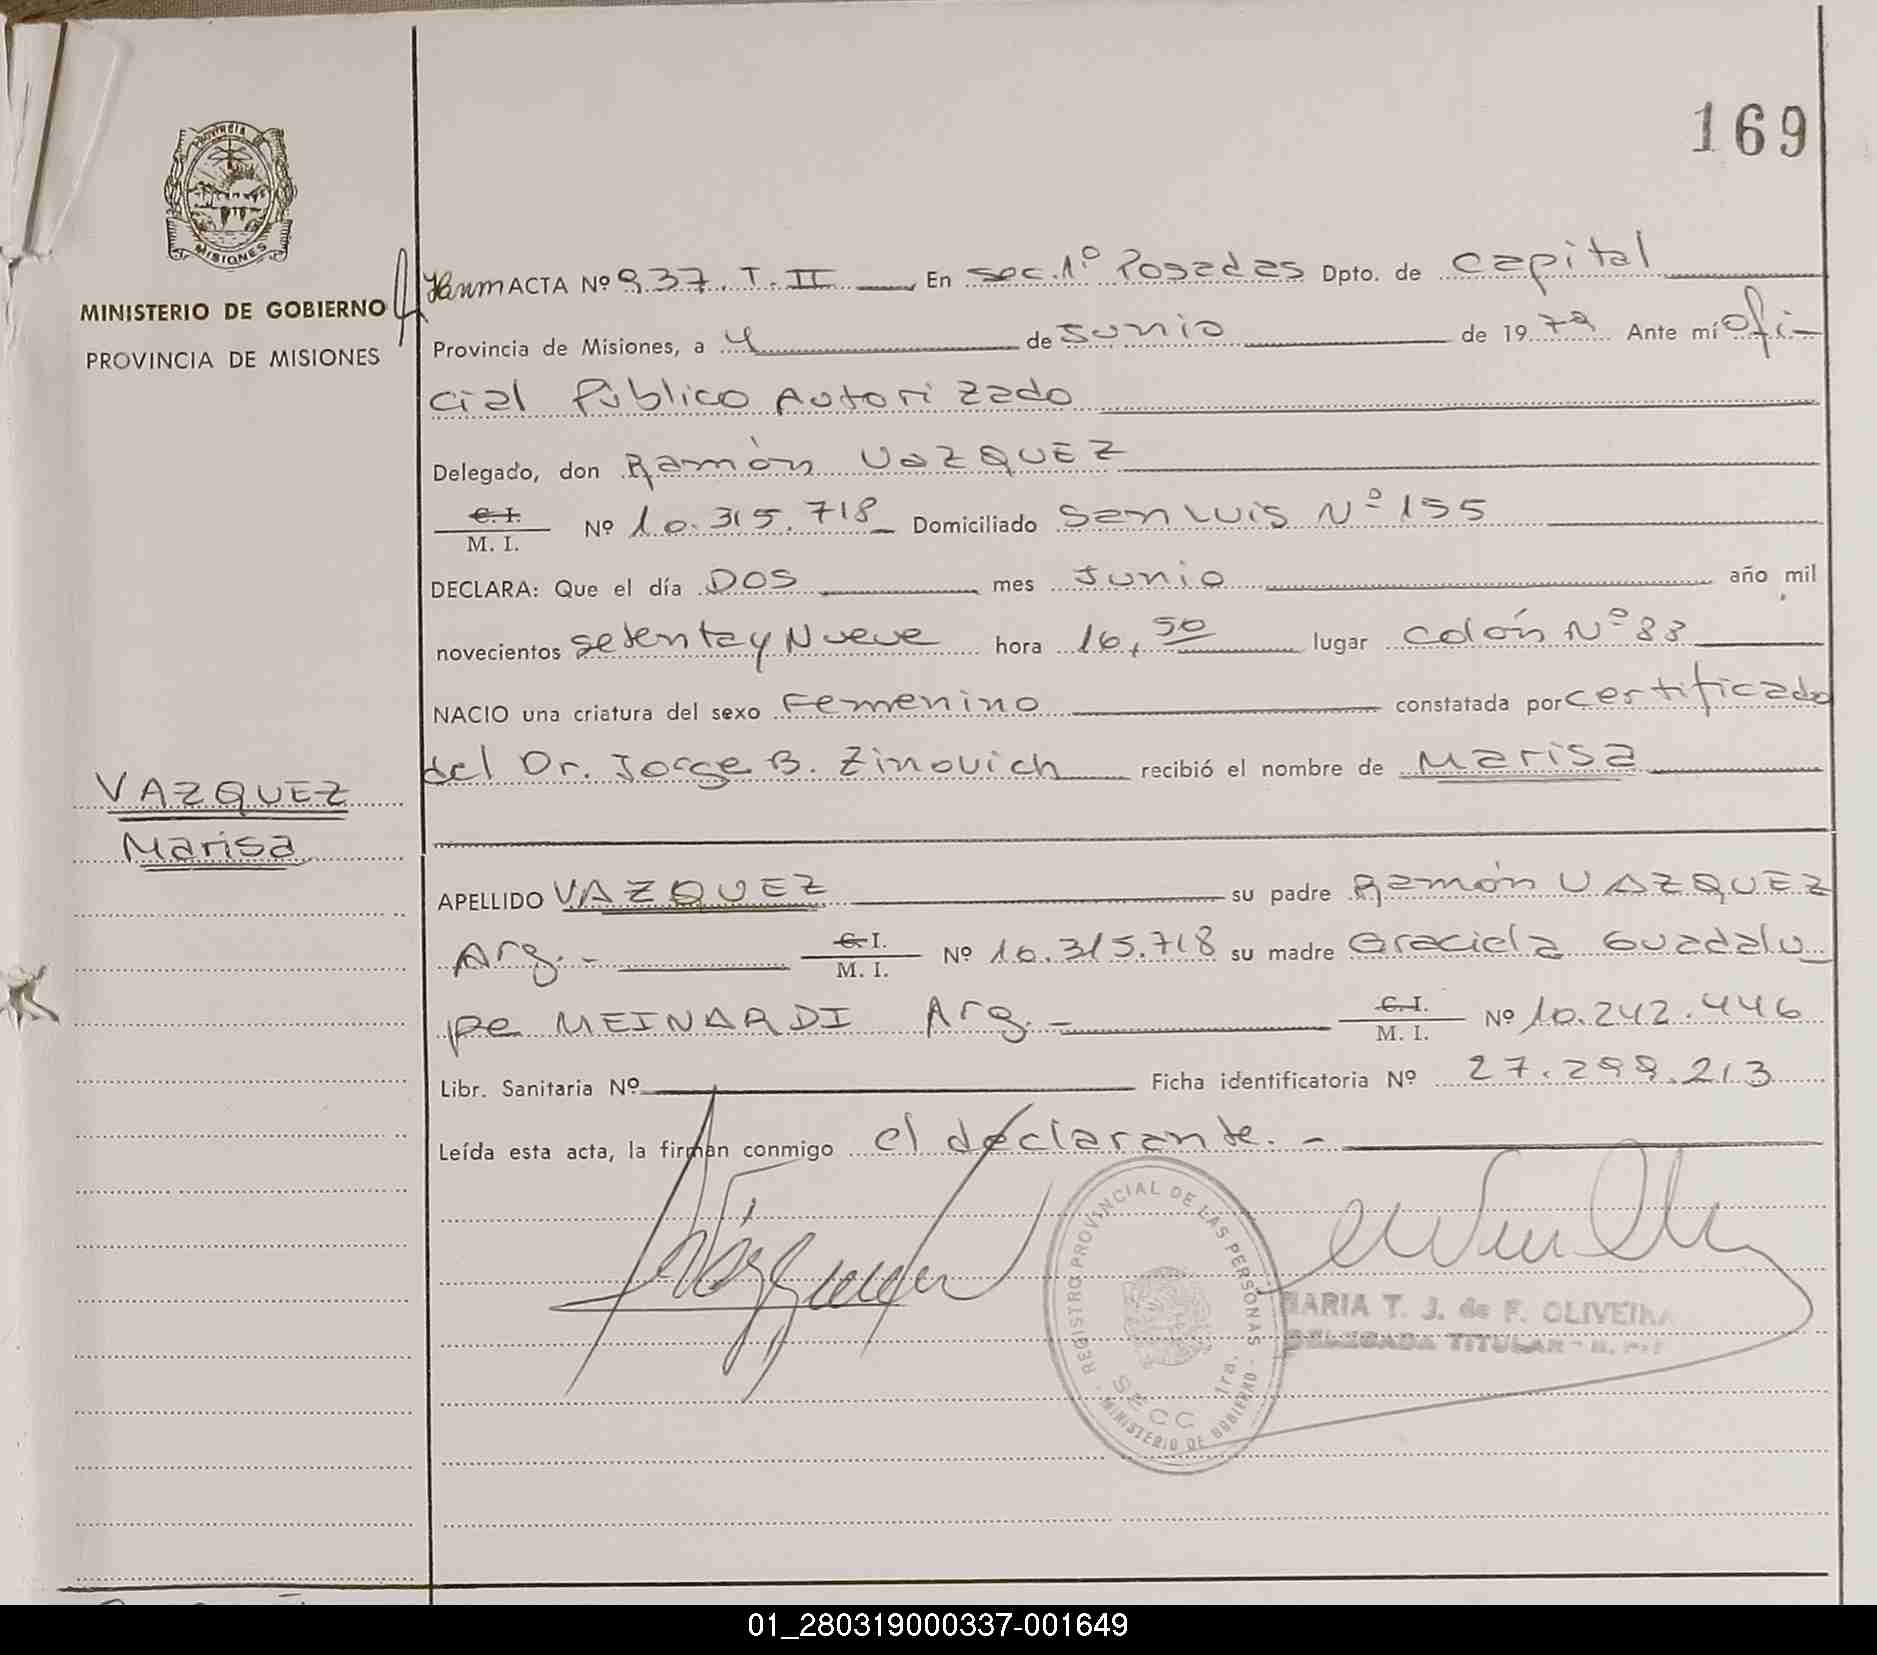 169
MINISTERIO DE GOBIERNO
PROVINCIA DE MISIONES
PROVINCIA DE
MISIONES
ACTA Nº 937. T. II En sec. 1º Posadas Dpto. de capital
Provincia de Misiones, a 4 de Junio de 1979 Ante mí Ofi-
cial Público Autorizado
Delegado, don Ramón VAZQUEZ
C. I.
M. I. Nº 10.315.718 Domiciliado San Luis Nº 155
DECLARA: Que el día DOS mes Junio año mil
novecientos setenta y Nueve hora 16,50 lugar Colón Nº 33
NACIO una criatura del sexo Femenino constatada por certificado
del Dr. Jorge B. Zinovich recibió el nombre de Marisa
VAZQUEZ
Marisa
APELLIDO VAZQUEZ su padre Ramón VAZQUEZ
Arg.- C. I.
M. I. Nº 10.315.718 su madre Graciela Guadalu
pe MEINARDI Arg.- C. I.
M. I. Nº 10.242.446
Libr. Sanitaria Nº Ficha identificatoria Nº 27.299.213
Leída esta acta, la firman conmigo el declarante.-
REGISTRO PROVINCIAL DE LAS PERSONAS
SECC 1ra.
MINISTERIO DE GOBIERNO
MARIA T. J. de F. OLIVEIRA
DELEGADA TITULAR
01_280319000337-001649